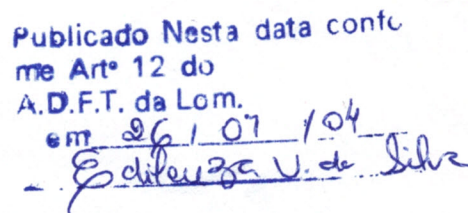 Publicado Nesta data confo
me Artº 12 do
A.D.F.T. da Lom.
em 26 / 07 / 04
Edileuza V. de Silva